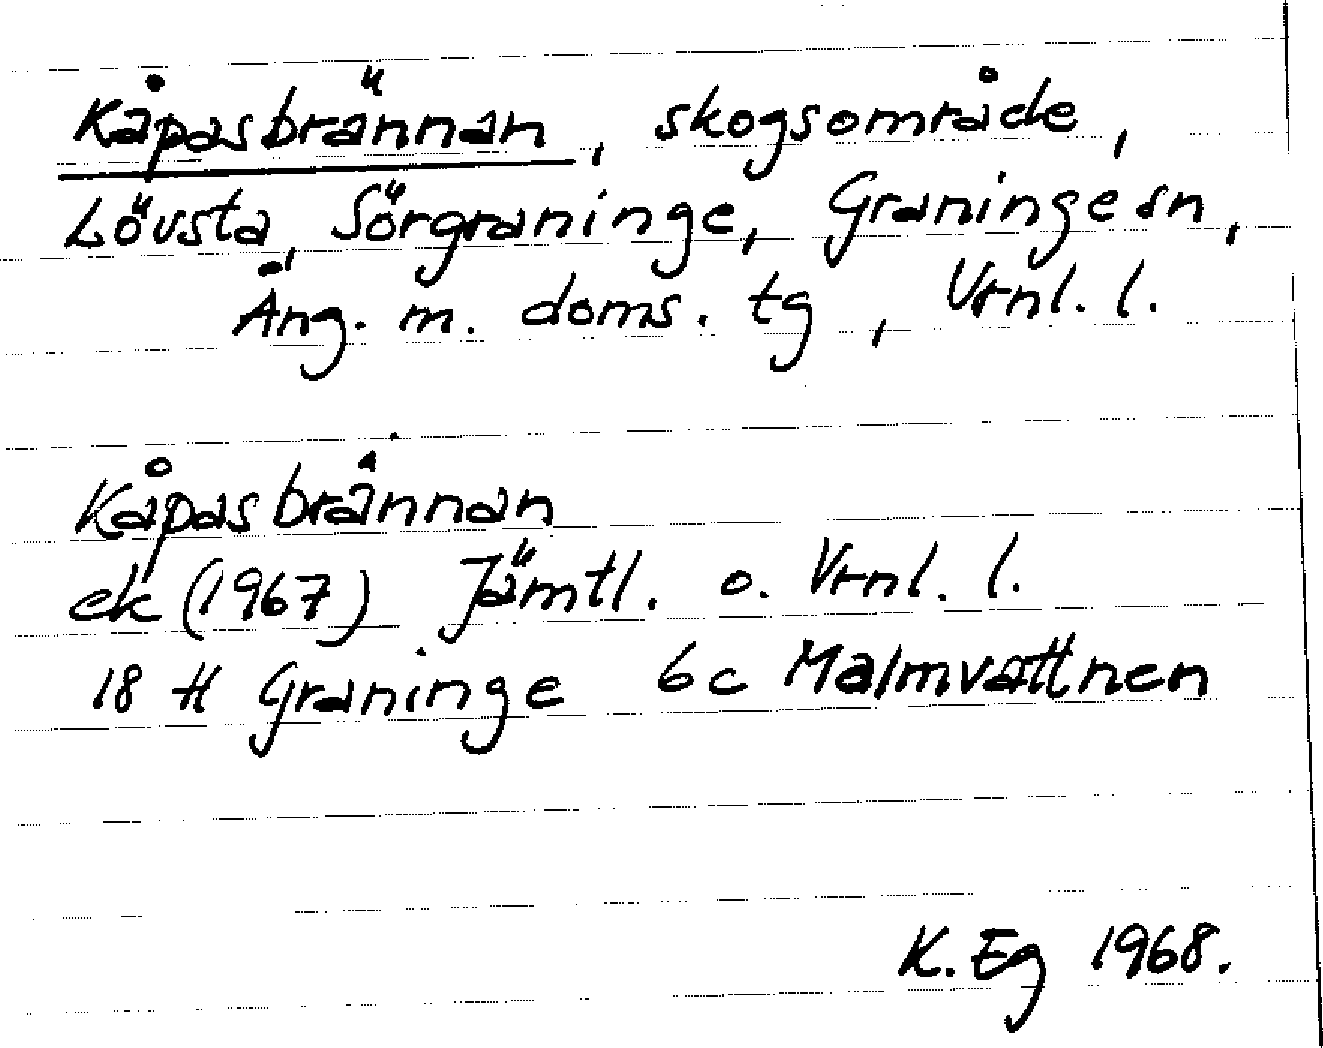 Kåpasbrännan, skogsområde,
Lövsta, Sörgraninge, Graninge sn,
Ång. m. doms. tg, Vrnl. l.
Kåpasbrännan
ek (1967) Jämtl. o. Vrnl. l.
18 H Graninge 6c Malmvattnen
K. Eg 1968.